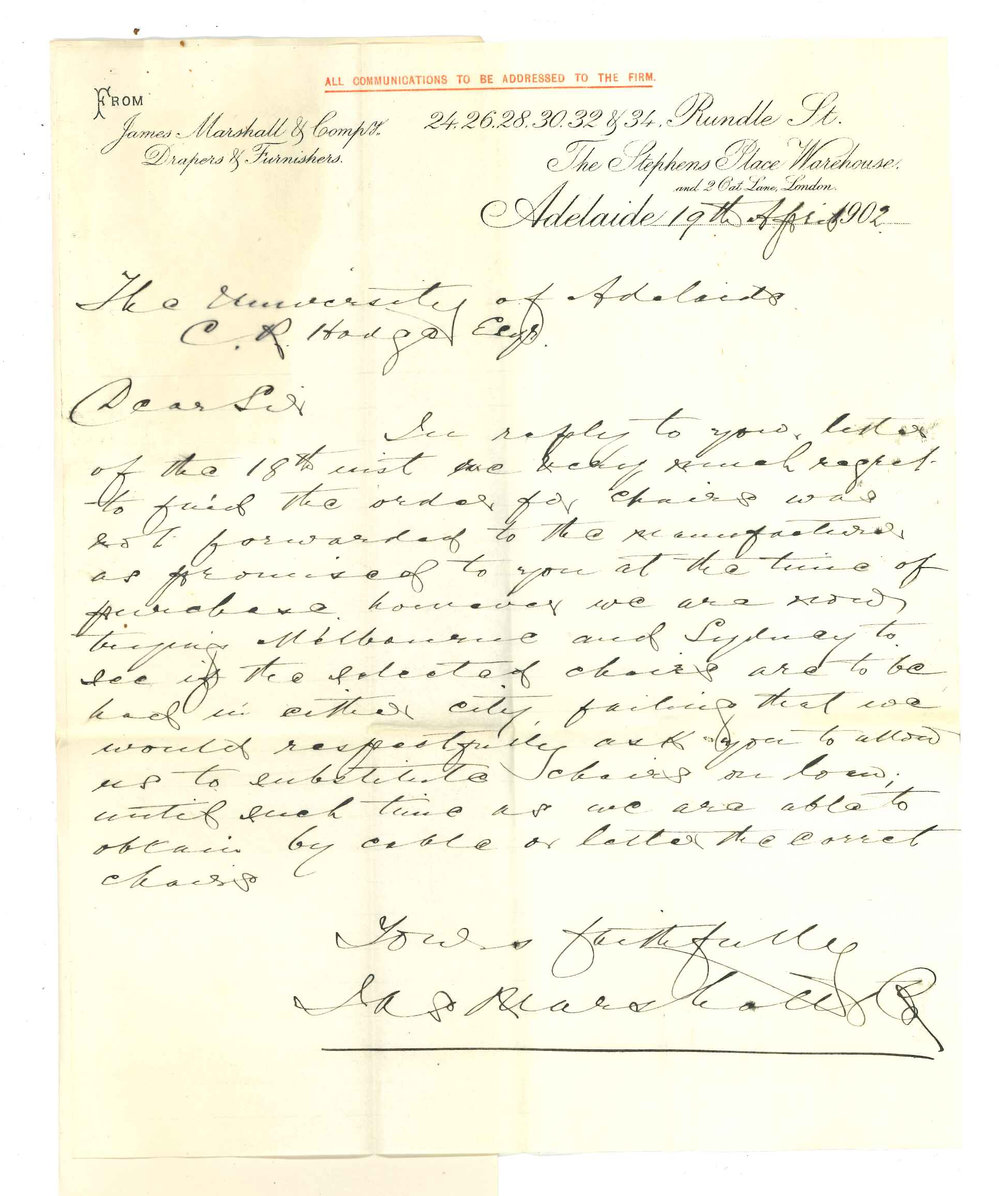 ALL COMMUNICATIONS TO BE ADDRESSED TO THE FIRM.
FROM
James Marshall & Compy.
Drapers & Furnishers.
24.26.28.30.32 & 34. Rundle St.
The Stephens Place Warehouse.
and 2 Oat Lane, London.
Adelaide 19th April 1902
The University of Adelaide
C. R. Hodge Esqr.
Dear Sir
In reply to your letter
of the 18th inst we very much regret
to find the order for chairs was
not forwarded to the manufacturer
as promised to you at the time of
purchase, however we are now
trying Melbourne and Sydney to
see if the selected chairs are to be
had in either city, failing that we
would respectfully ask you to allow
us to substitute chairs on loan,
until such time as we are able to
obtain by cable or letter the correct
chairs
Yours faithfully
Jas Marshall & Co